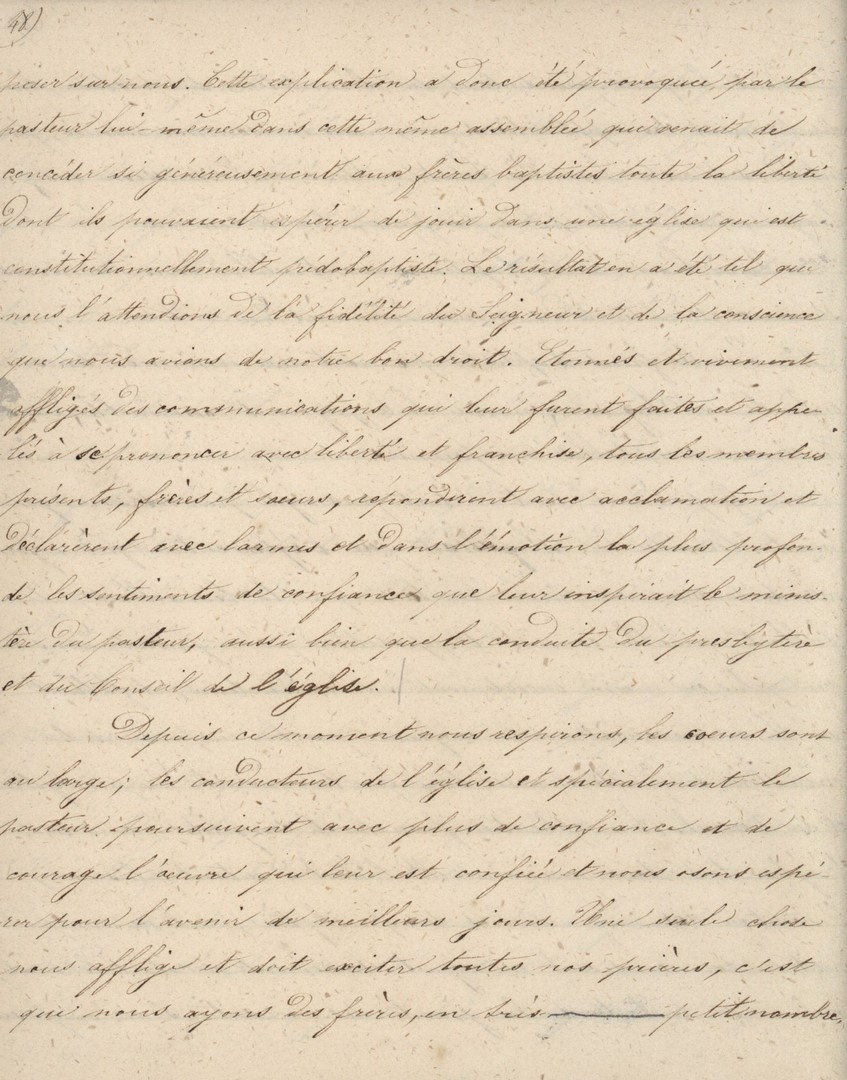 48)
peser sur nous. Cette explication a donc été provoquée par le
pasteur lui-même dans cette même assemblée qui venait de
concéder si généreusement aux frères baptistes toute la liberté
dont ils pouvaient espérer de jouir dans une église qui est
constitutionnellement pédobaptiste. Le résultat en a été tel que
nous l'attendions de la fidélité du Seigneur et de la conscience
que nous avions de notre bon droit. Etonnés et vivement
affligés des communications qui leur furent faites et appe-
lés à se prononcer avec liberté et franchise, tous les membres
présents, frères et soeurs, répondirent avec acclamation et
déclarèrent avec larmes et dans l'émotion la plus profon-
de les sentiments de confiance que leur inspirait le minis-
tère du pasteur, aussi bien que la conduite du presbytère
et du Conseil de l'église.
Depuis ce moment nous respirons, les coeurs sont
au large; les conducteurs de l'église et spécialement le
pasteur poursuivent avec plus de confiance et de
courage l'oeuvre qui leur est confiée et nous osons espé-
rer pour l'avenir de meilleurs jours. Une seule chose
nous afflige et doit exciter toutes nos prières, c'est
que nous ayons des frères, en très — petit nombre,